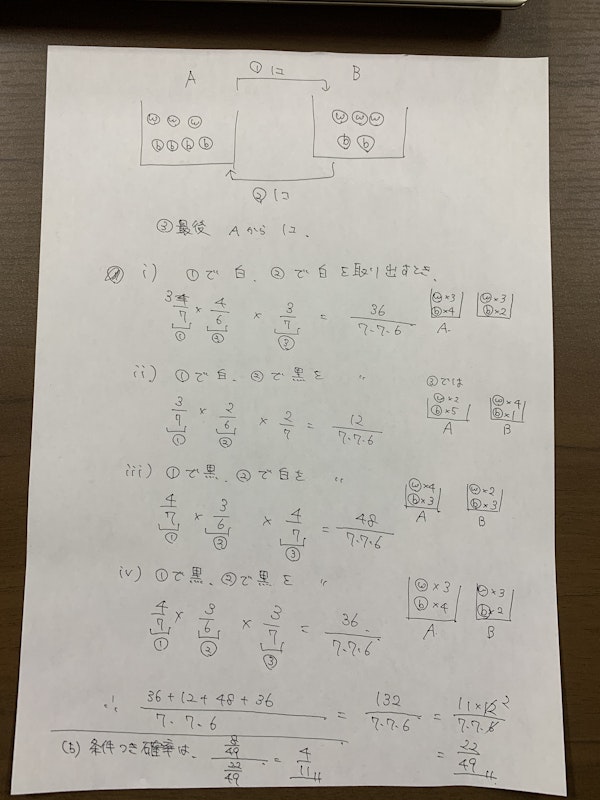 ① 1コ
A B
w w w
b b b b
w w w
b b
② 1コ
③ 最後 Aから1コ、
i) ①で白、②で白を取り出すとき、
3/7 × 4/6 × 3/7 = 36/7・7・6
① ② ③
w×3 b×4 A
w×3 b×2
ii) ①で白、②で黒を 〃
3/7 × 2/6 × 2/7 = 12/7・7・6
① ②
③では
w×2 b×5 A
w×4 b×1 B
iii) ①で黒、②で白を 〃
4/7 × 3/6 × 4/7 = 48/7・7・6
① ② ③
w×4 b×3 A
w×2 b×3 B
iv) ①で黒、②で黒を 〃
4/7 × 3/6 × 3/7 = 36/7・7・6
① ② ③
w×3 b×4 A
w×3 b×2 B
∴ 36+12+48+36/7・7・6 = 132/7・7・6 = 11×12 2/7・7・6
= 22/49
(b) 条件つき確率は、 8/49/22/49 = 4/11